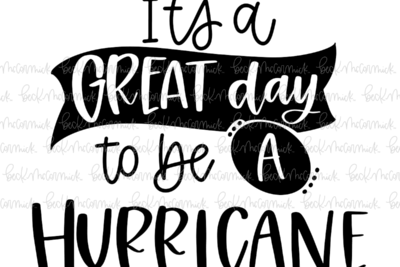 It's a
GREAT day
to be A
HURRICANE